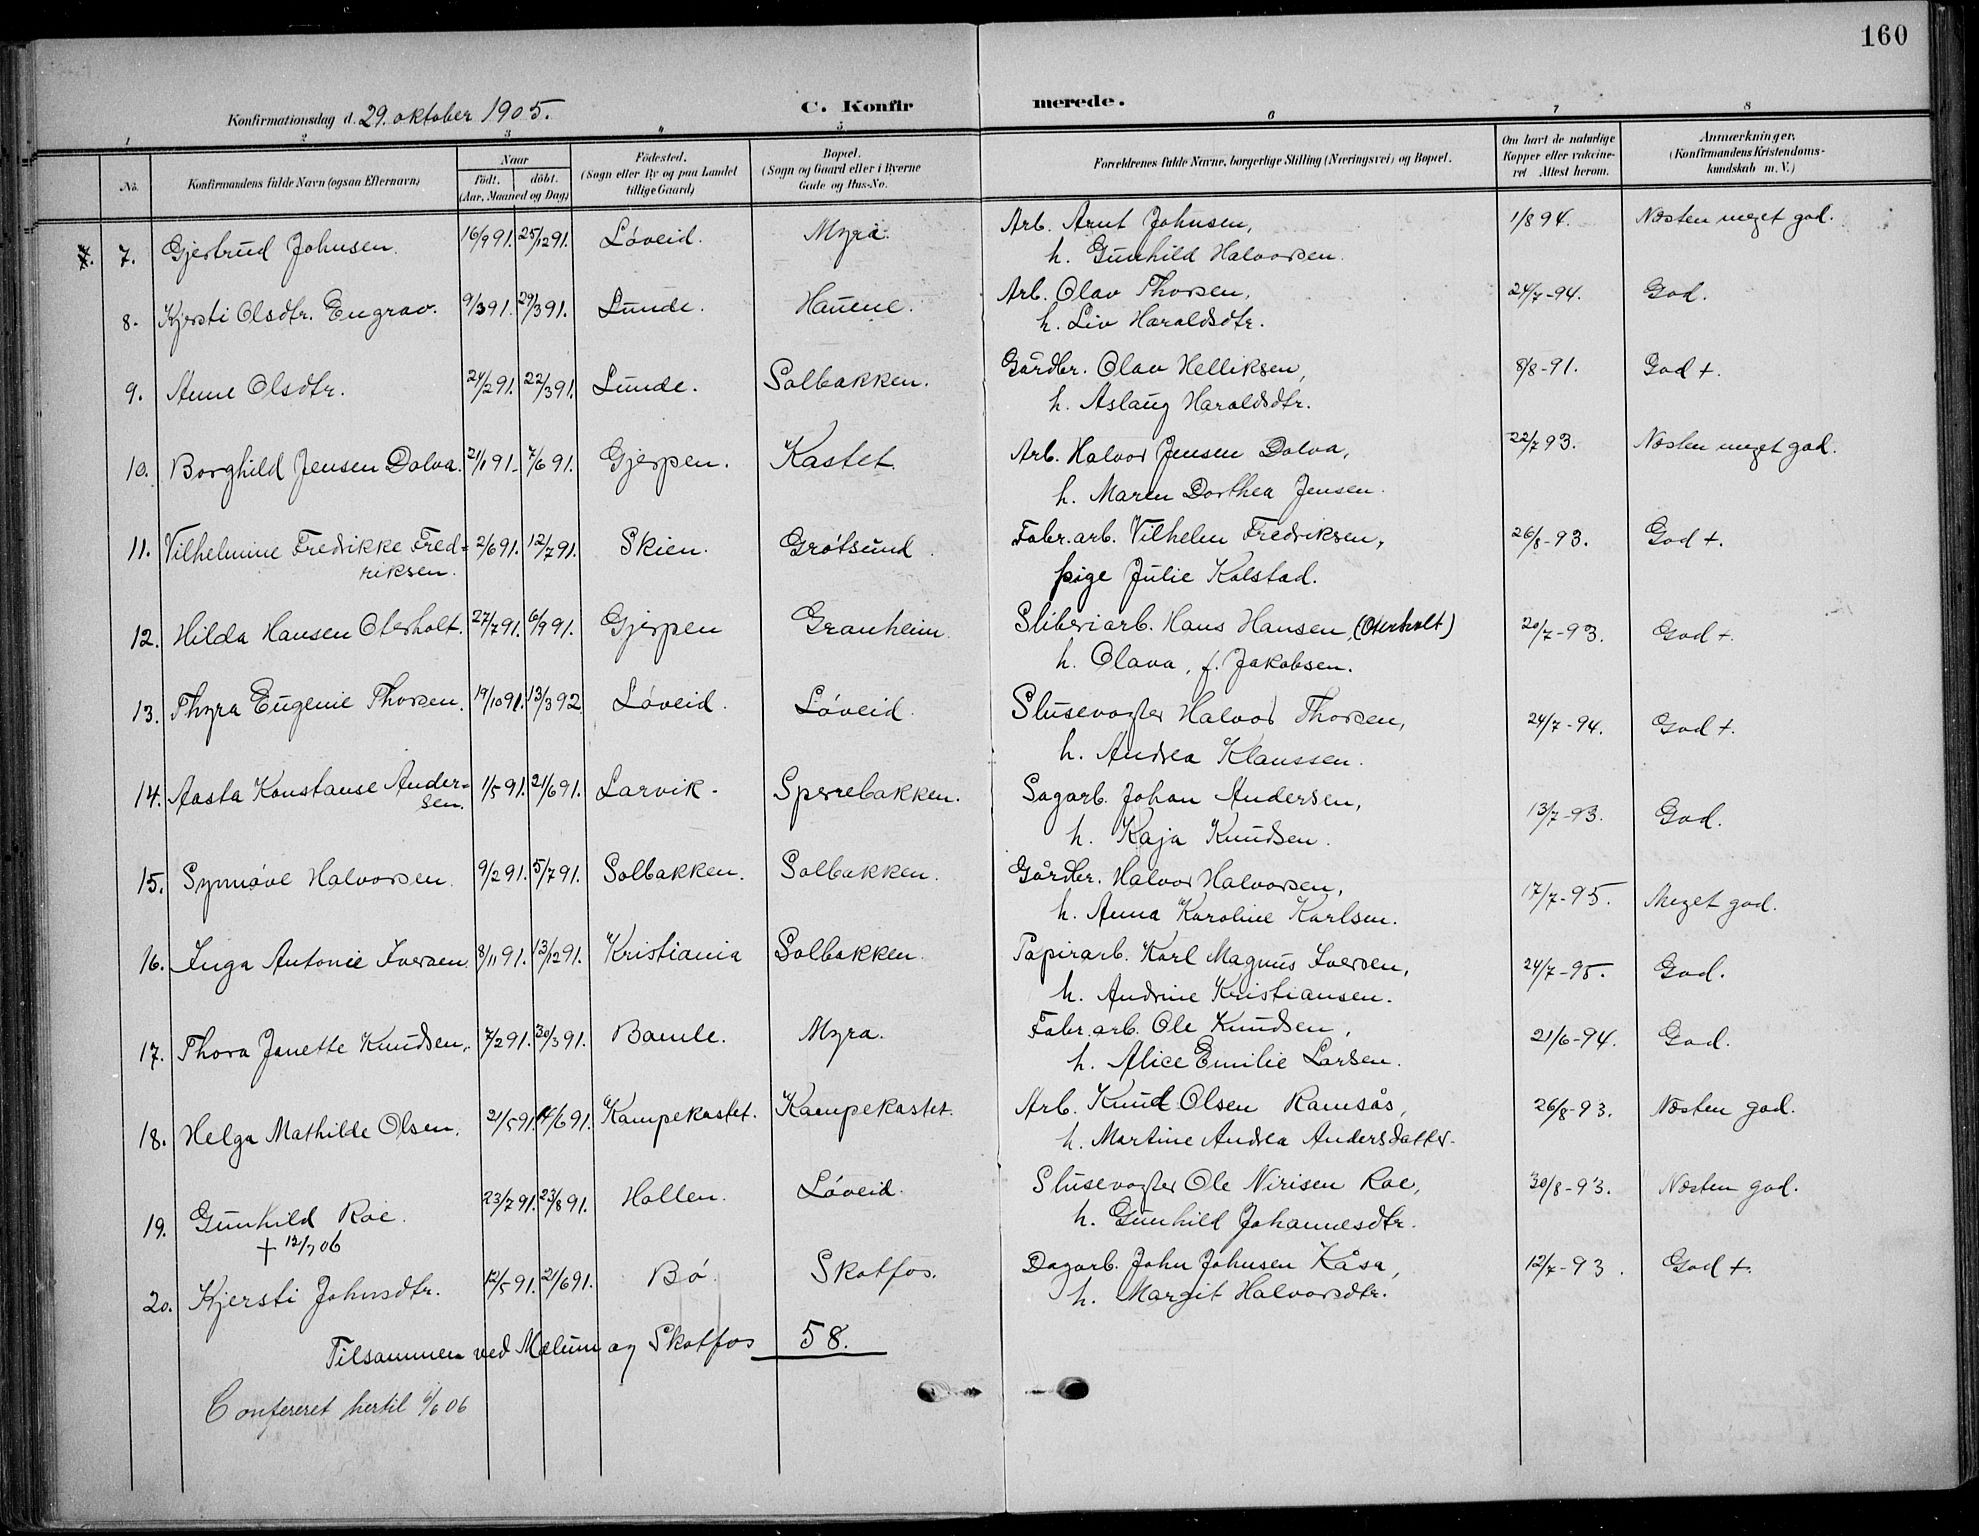 160
Konfirmationsdag d. 29. oktober 1905.
C. Konfirmerede.
1 2 3 4 5 6 7 8
No. Konfirmandens fulde Navn (ogsaa Efternavn) Naar født. døbt. (Aar, Maaned og Dag) Fødested. (Sogn eller By og paa Landet tillige Gaard) Bopæl. (Sogn og Gaard eller i Byerne Gade og Hus-No. Forældrenes fulde Navne, borgerlige Stilling (Næringsvei) og Bopæl. Om havt de naturlige Kopper eller vakcineret Attest herom. Anmærkninger. (Konfirmandens Kristendomskundskab m. V.)
7. Gjertrud Johnsen. 16/9 91. 25/12 91. Løveid. Myra. Arb. Arnt Johnsen, 1/8 94. Næsten meget god.
h. Gunhild Halvorsen.
8. Kjersti Olsdtr. Engrav. 9/3 91. 29/3 91. Lunde. Hauene. Arb. Olav Thorsen, 24/7-94. God.
h. Liv Haraldsdtr.
9. Anne Olsdtr. 24/2 91. 22/3 91. Lunde. Solbakken. Gårdbr. Olav Helliksen, 8/8-91. God +.
h. Aslaug Haraldsdtr.
10. Borghild Jensen Dolva. 21/1 91. 7/6 91. Gjerpen. Kastet. Arb. Halvor Jensen Dolva, 22/7 93. Næsten meget god.
h. Maren Dorthea Jensen.
11. Vilhelmine Fredrikke Fred- 2/6 91. 12/7 91. Skien. Grøtsund. Fabr.arb. Vilhelm Fredriksen, 26/8-93. God +.
riksen. pige Julie Kolstad.
12. Hilda Hansen Oterholt. 27/7 91. 6/9 91. Gjerpen Granheim. Sliberiarb. Hans Hansen, (Oterholt) 20/7-93. God +.
h. Olava, f. Jakobsen.
13. Thyra Eugenie Thorsen. 19/10 91. 13/3 92. Løveid. Løveid. Slusevogter Halvor Thorsen, 24/7-94. God +.
h. Andrea Klaussen.
14. Aasta Konstanse Ander- 1/5 91. 21/6 91. Larvik. Sperrebakken. Sagarb. Johan Andersen, 13/7-93. God.
sen. h. Kaja Knudsen.
15. Synnøve Halvorsen. 9/2 91. 5/7 91. Solbakken. Solbakken. Gårdbr. Halvor Halvorsen, 17/7-95. Meget god.
h. Anna Karoline Karlsen.
16. Inga Antonie Iversen. 8/11 91. 13/12 91. Kristiania Solbakken. Papirarb. Karl Magnus Iversen, 24/7-95. God.
h. Andrine Kristiansen.
17. Thora Janette Knudsen. 7/2 91. 30/3 91. Bamle. Myra. Fabr.arb. Ole Knudsen, 21/6-94. God.
h. Alice Emilie Larsen.
18. Helga Mathilde Olsen. 21/5 91. 14/6 91. Kampekastet. Kampekastet. Arb. Knud Olsen Ramsås, 26/8-93. Næsten god.
h. Martine Andrea Andersdatter.
19. Gunhild Roe. 23/7 91. 23/8 91. Hollen. Løveid. Slusevogter Ole Nirisen Roe, 30/8-93. Næsten god.
+ 12/7 06 h. Gunhild Johannesdtr.
20. Kjersti Johnsdtr. 12/5 91. 21/6 91. Bø. Skotfos. Dagarb. John Johnsen Kåsa, 12/7-93. God +.
h. Margit Halvorsdtr.
Tilsammen ved Mælum og Skotfos 58.
Confereret hertil 6/6 06